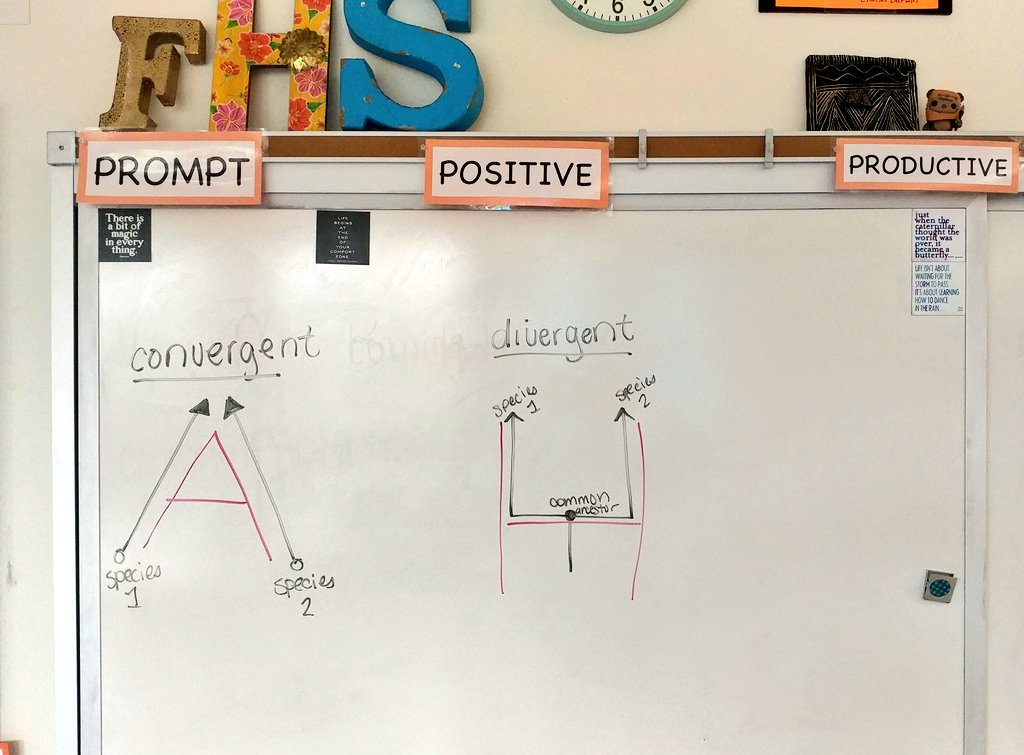 FHS
6
PROMPT
POSITIVE
PRODUCTIVE
There is
a bit of
magic
in every
thing.
LIFE
BEGINS
AT
THE
END
OF
YOUR
COMFORT
ZONE
just
when the
caterpillar
thought the
world was
over, it
became a
butterfly...
LIFE ISN'T ABOUT
WAITING FOR THE
STORM TO PASS.
IT'S ABOUT LEARNING
HOW TO DANCE
IN THE RAIN.
convergent
A
species
1
species
2
divergent
species
1
species
2
H
common
ancestor